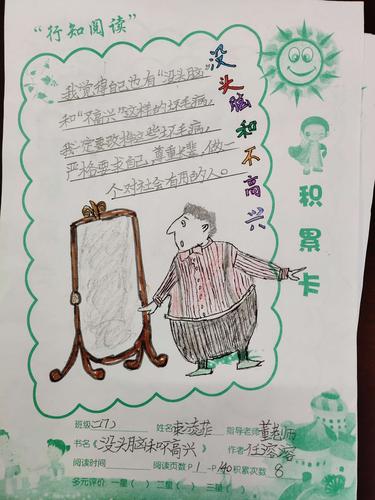 “行知阅读”
没头脑和不高兴
我觉得自己也有“没头脑”
和“不高兴”这样的坏毛病，
我一定要改掉这些坏毛病，
严格要求自己，尊重长辈，做一
个对社会有用的人。
积累卡
班级 二(7) 姓名 凌菲 指导老师 董老师
书名《没头脑和不高兴》 作者 任溶溶
阅读时间 阅读页数P 1 -P 140 积累次数 8
多元评价 一星( ) 二星( ) 三星( )